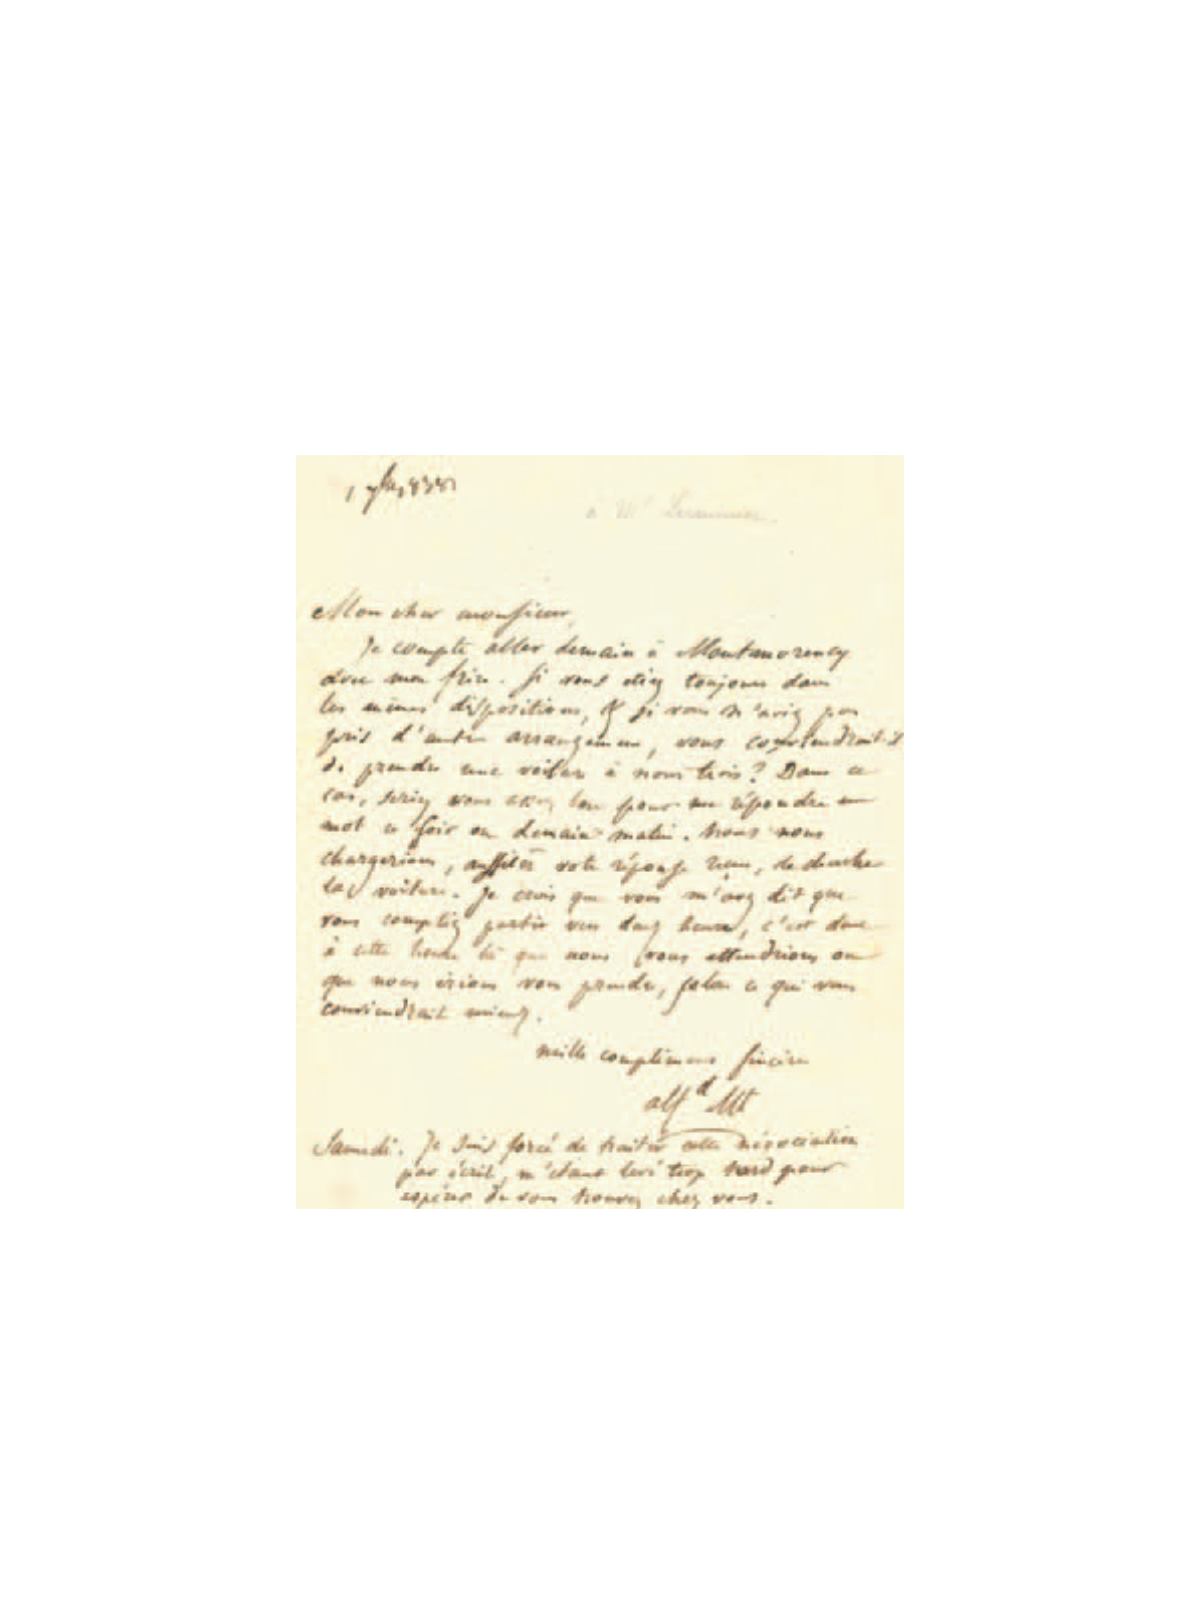 1 7bre 1838
à Mr Lerminier.
Mon cher monsieur,
Je compte aller demain à Montmorency
avec mon frère. Si vous étiez toujours dans
les mêmes dispositions, & si vous n'aviez pas
pris d'autre arrangement, vous conviendrait-il
de prendre une voiture à nous trois? Dans ce
cas, seriez vous assez bon pour me répondre un
mot ce soir ou demain matin. Nous nous
chargerions, aussitôt votre réponse reçue, de chercher
la voiture. Je crois que vous m'avez dit que
vous comptiez partir vers deux heures, c'est donc
à cette heure là que nous vous attendrions ou
que nous irions vous prendre, selon ce qui vous
conviendrait mieux.
mille complimens sincères
Alfd Mt
Samedi. Je suis forcé de traiter cette négociation
par écrit, m'étant levé trop tard pour
espérer de vous trouver chez vous.